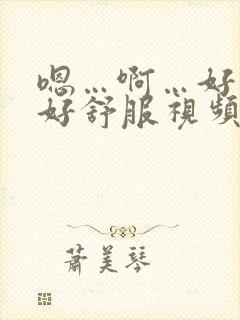 嗯…啊…好
好舒服視頻
蕭美琴